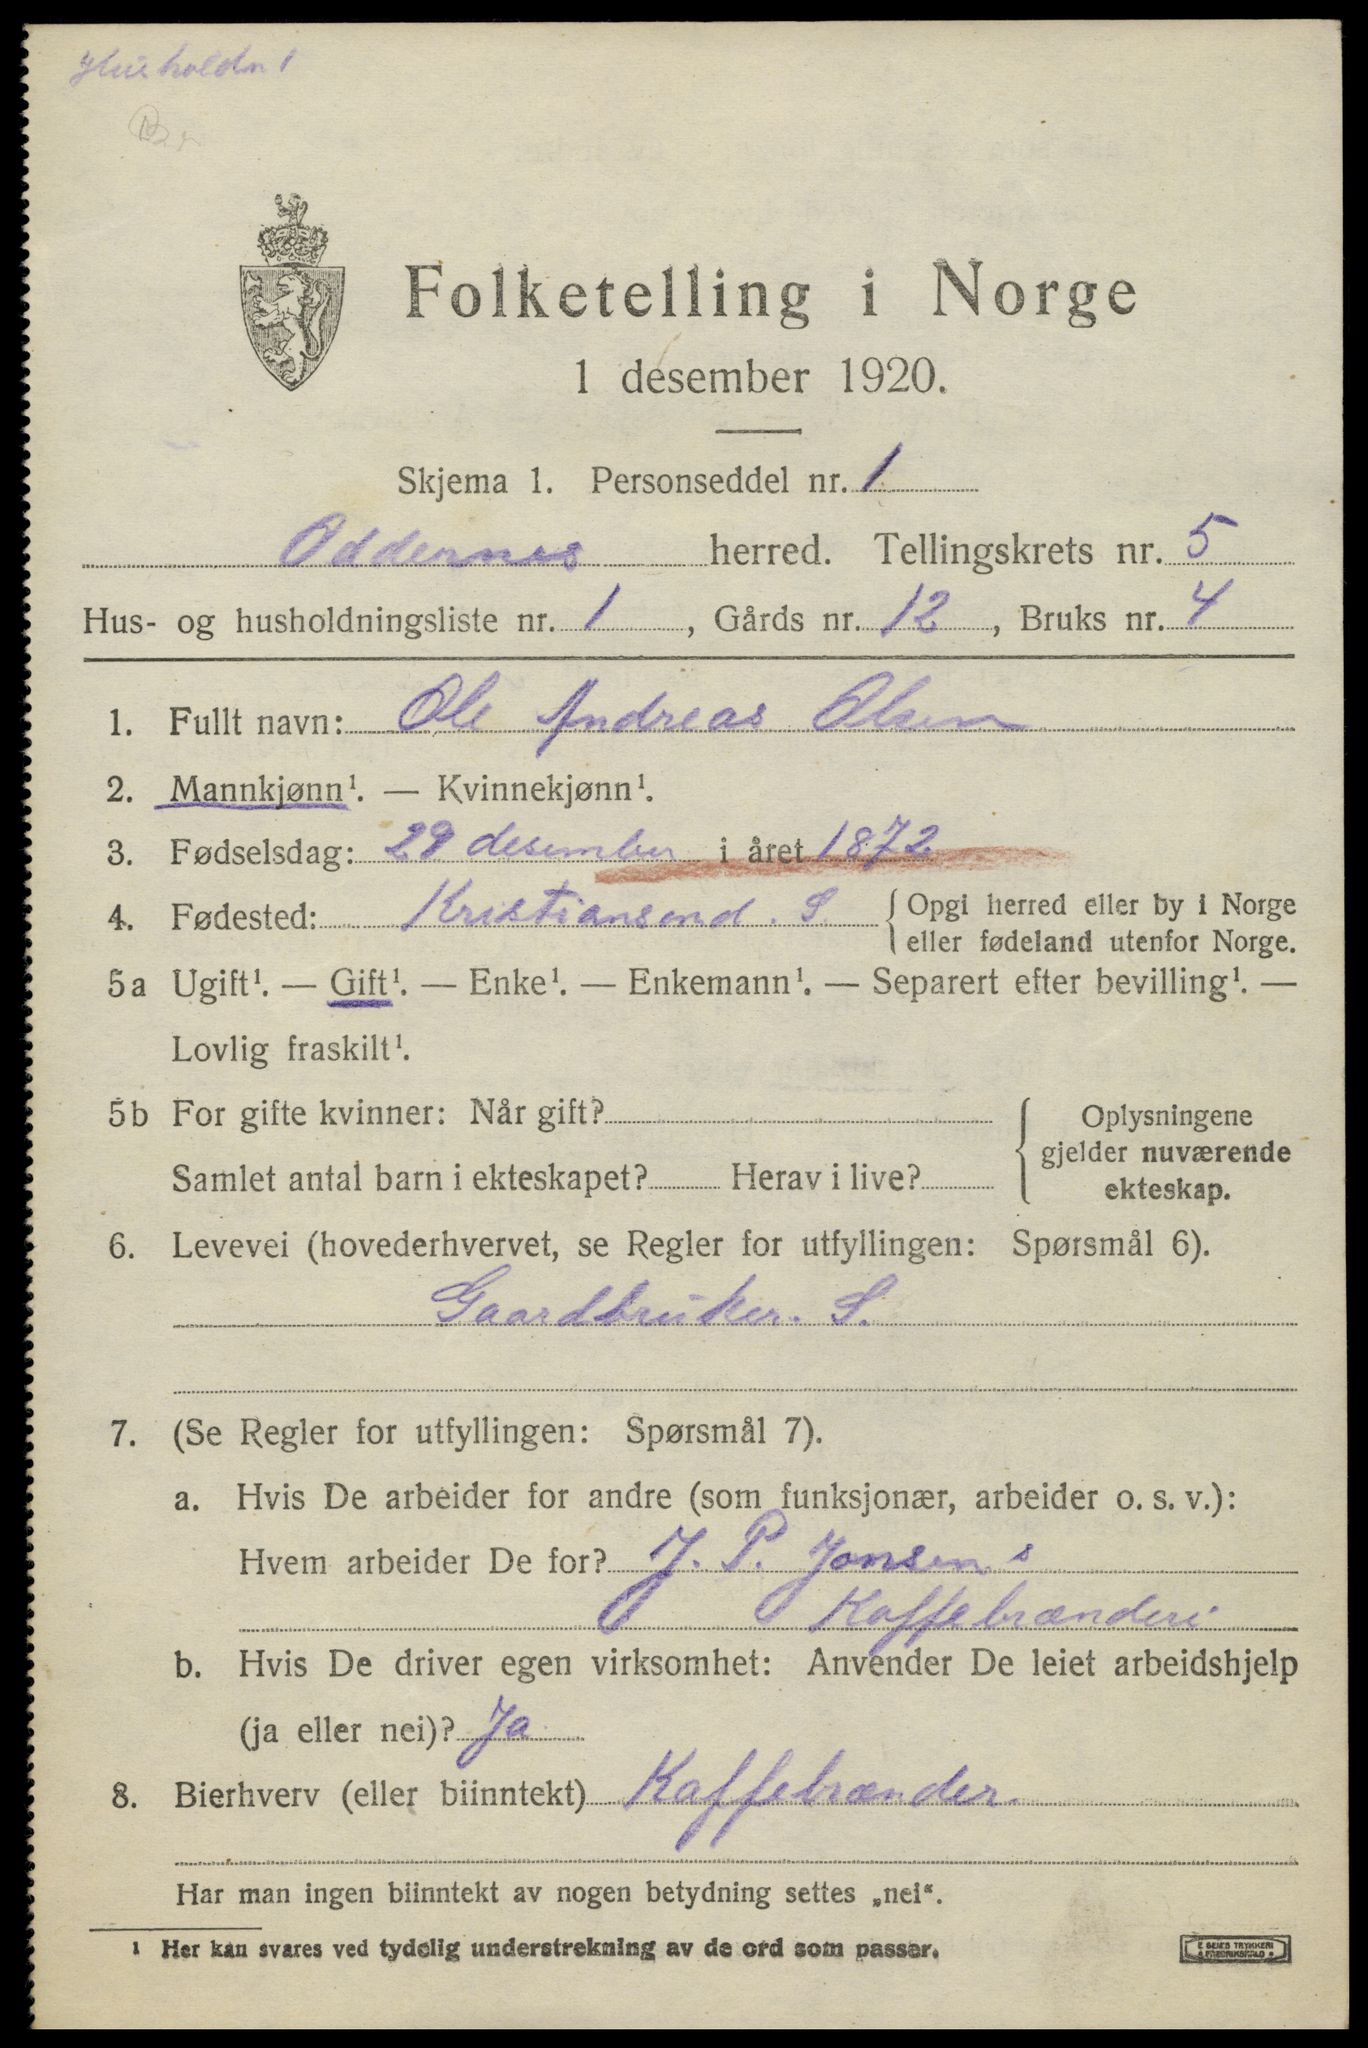 Husholdn 1
Folketelling i Norge
1 desember 1920.
Skjema 1. Personseddel nr. 1
Oddernes herred. Tellingskrets nr. 5
Hus- og husholdningsliste nr. 1, Gårds nr. 12, Bruks nr. 4
1. Fullt navn: Ole Andreas Olsen
2. Mannkjønn¹. — Kvinnekjønn¹.
3. Fødselsdag: 29 desember i året 1872
4. Fødested: Kristiansand. S. { Opgi herred eller by i Norge
eller fødeland utenfor Norge.
5a Ugift¹. — Gift¹. — Enke¹. — Enkemann¹. — Separert efter bevilling¹. —
Lovlig fraskilt¹.
5b For gifte kvinner: Når gift?
Samlet antal barn i ekteskapet? Herav i live?
{ Oplysningene
gjelder nuværende
ekteskap.
6. Levevei (hovederhvervet, se Regler for utfyllingen: Spørsmål 6).
Gaardbruker. S.
7. (Se Regler for utfyllingen: Spørsmål 7).
a. Hvis De arbeider for andre (som funksjonær, arbeider o. s. v.):
Hvem arbeider De for? J. P. Jonsens
Kaffebrænderi
b. Hvis De driver egen virksomhet: Anvender De leiet arbeidshjelp
(ja eller nei)? Ja
8. Bierhverv (eller biinntekt) Kaffebrænder.
Har man ingen biinntekt av nogen betydning settes „nei“.
¹ Her kan svares ved tydelig understrekning av de ord som passer.
E SEJES TRYKKERI
FREDRIKSHALD